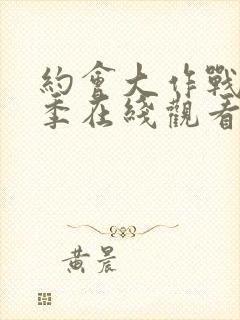 約會大作戰
季在綫觀看
黄晨